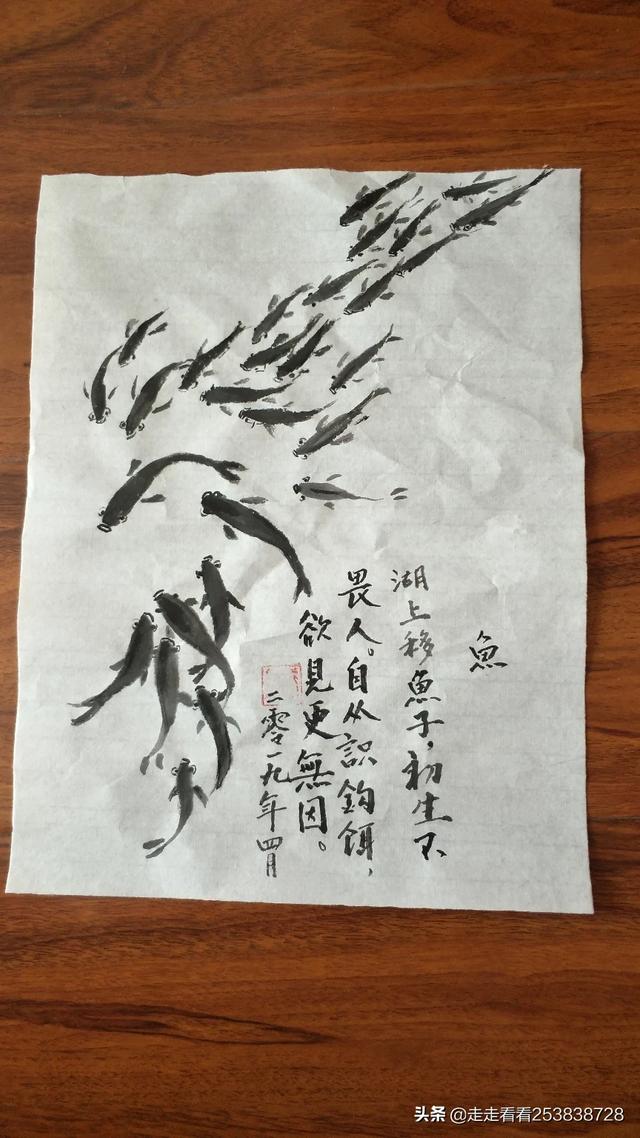 魚
湖上移魚子，初生不
畏人。自从識鈎餌，
欲見更無因。
二零一九年四月
头条 @走走看看253838728